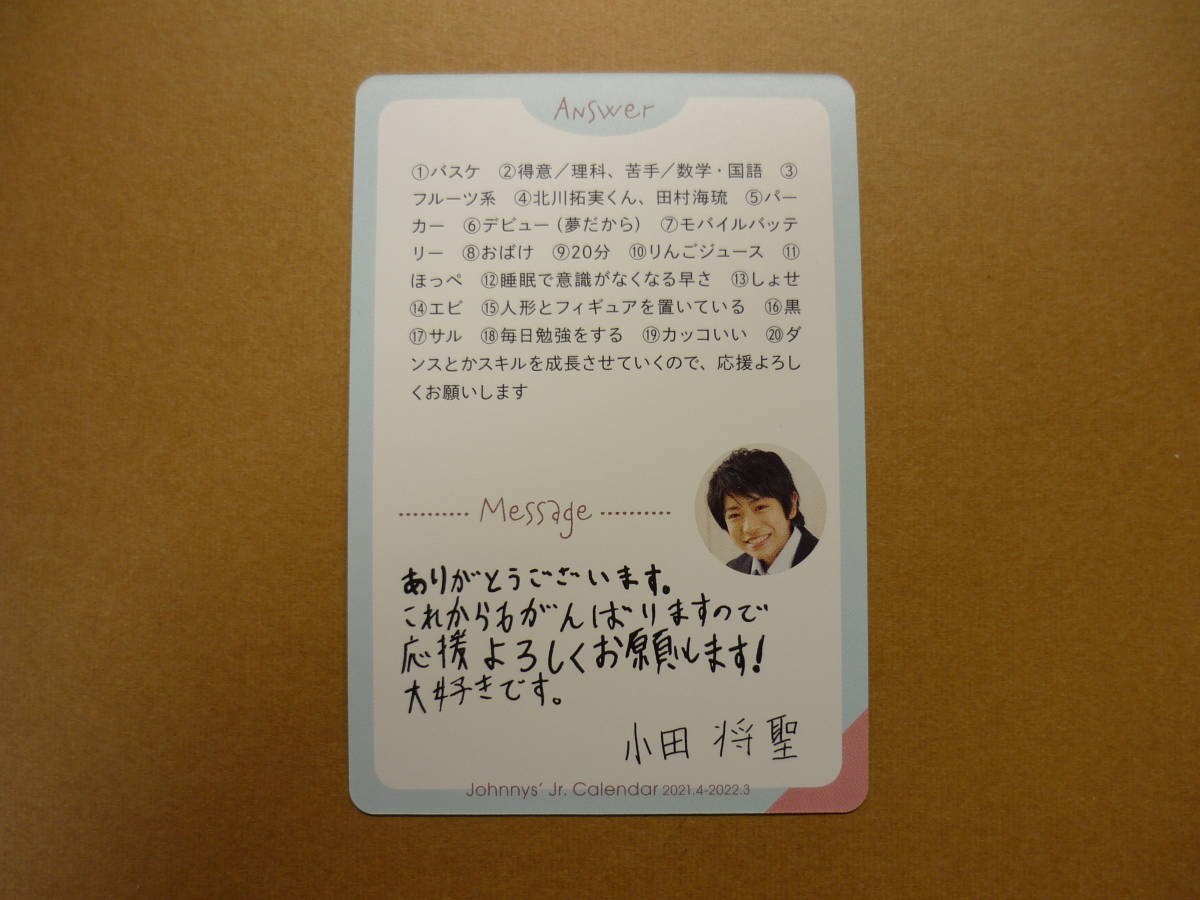 Answer
①バスケ ②得意／理科、苦手／数学・国語 ③
フルーツ系 ④北川拓実くん、田村海琉 ⑤パー
カー ⑥デビュー（夢だから） ⑦モバイルバッテ
リー ⑧おばけ ⑨20分 ⑩りんごジュース ⑪
ほっぺ ⑫睡眠で意識がなくなる早さ ⑬しょせ
⑭エビ ⑮人形とフィギュアを置いている ⑯黒
⑰サル ⑱毎日勉強をする ⑲カッコいい ⑳ダ
ンスとかスキルを成長させていくので、応援よろし
くお願いします
Message
ありがとうございます。
これからもがんばりますので
応援よろしくお願します!
大好きです。
小田 将聖
Johnnys' Jr. Calendar 2021.4-2022.3